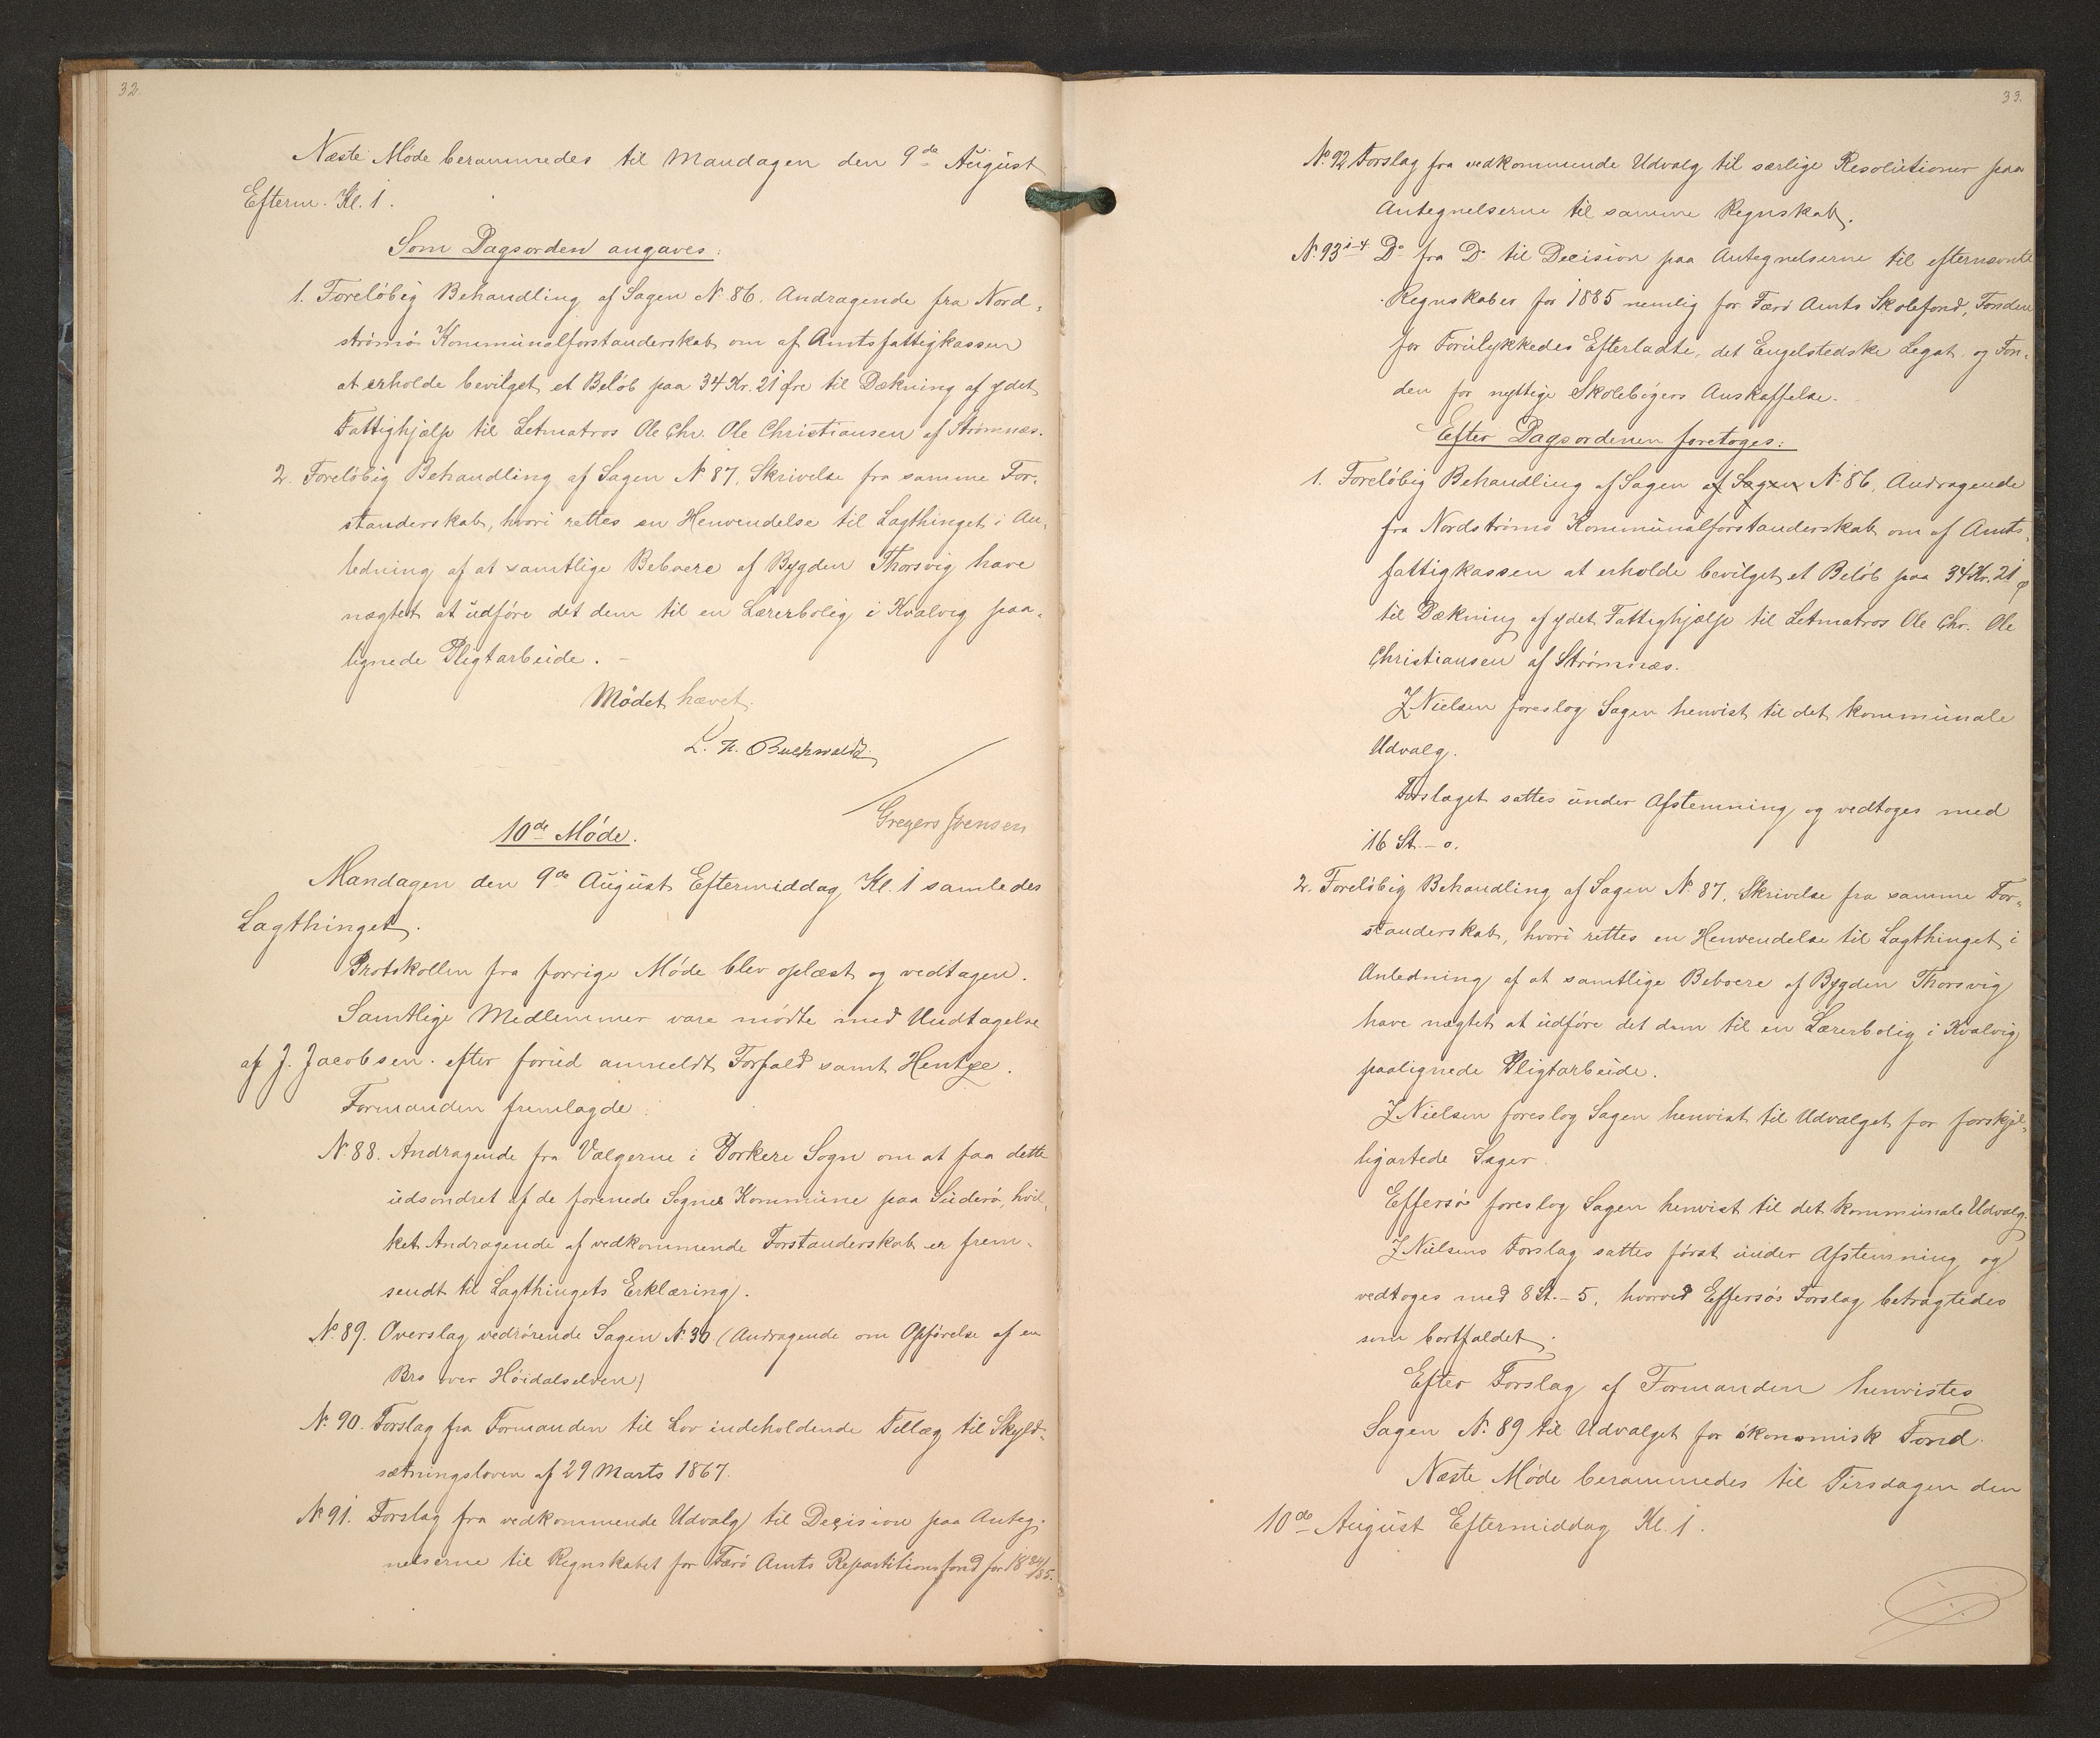 32.
Næste Møde berammedes til Mandagen den 9de August
Efterm. Kl. 1.
Som Dagsorden angaves:
1. Foreløbig Behandling af Sagen No 86. Andragende fra Nord-
strømø Kommunalforstanderskab om af Amtsfattigkassen
at erholde bevilget et Beløb paa 34 Kr. 21 Øre til Dækning af ydet
Fattighjælp til Letmatros Ole Chr. Ole Christiansen af Strømnæs.
2. Foreløbig Behandling af Sagen No 87. Skrivelse fra samme For-
standerskab, hvori rettes en Henvendelse til Lagthinget i An-
ledning af at samtlige Beboere af Bygden Thorsvig have
nægtet at udføre det dem til en Lærerbolig i Kvalvig paa-
lignede Pligtarbeide. –
Mødet hævet.
L. N. Buchwaldt.
Gregers Joensen
10de Møde.
Mandagen den 9de August Eftermiddag Kl. 1 samledes
Lagthinget.
Protokollen fra forrige Møde blev oplæst og vedtagen.
Samtlige Medlemmer vare mødte med Undtagelse
af J. Jacobsen efter forud anmeldt Forfald samt Hentze.
Formanden fremlagde:
No 88. Andragende fra Vælgerne i Porkere Sogn om at faa dette
udsondret af de forenede Sognes Kommune paa Suderø, hvil-
ket Andragende af vedkommende Forstanderskab er frem-
sendt til Lagthingets Erklæring.
No 89. Overslag vedrørende Sagen No 30 (Andragende om Opførelse af en
Bro over Høidalselven)
No 90. Forslag fra Formanden til Lov indeholdende Tillæg til Skyld-
sætningsloven af 29 Marts 1867.
No 91. Forslag fra vedkommende Udvalg til Decision paa Anteg-
nelserne til Regnskabet for Færø Amts Repartitionsfond for 1884/85.
33.
No 92 Forslag fra vedkommende Udvalg til særlige Resolutioner paa
Antegnelserne til samme Regnskab.
No 93 1-4 Do fra Do til Decision paa Antegnelserne til efternævnte
Regnskaber for 1885 nemlig for Færø Amts Skolefond, Fonden
for Forulykkedes Efterladte, det Engelstedske Legat og Fon-
den for nyttige Skolebøgers Anskaffelse.
Efter Dagsordenen foretoges:
1. Foreløbig Behandling af Sagen af Sagen No 86, Andragende
fra Nordstrømø Kommunalforstanderskab om af Amts-
fattigkassen at erholde bevilget et Beløb paa 34 Kr. 21 Ø
til Dækning af ydet Fattighjælp til Letmatros Ole Chr. Ole
Christiansen af Strømnæs.
J Nielsen foreslog Sagen henvist til det kommunale
Udvalg.
Forslaget sattes under Afstemning og vedtoges med
16 St. – 0.
2. Foreløbig Behandling af Sagen No 87, Skrivelse fra samme For-
standerskab, hvori rettes en Henvendelse til Lagthinget i
Anledning af at samtlige Beboere af Bygden Thorsvig
have nægtet at udføre det dem til en Lærerbolig i Kvalvig
paalignede Pligtarbeide.
J Nielsen foreslog Sagen henvist til Udvalget for forskjel-
ligartede Sager.
Effersøe foreslog Sagen henvist til det kommunale Udvalg.
J Nielsens Forslag sattes først under Afstemning og
vedtoges med 8 St. – 5, hvorved Effersøs Forslag betragtedes
som bortfaldet.
Efter Forslag af Formanden henvistes
Sagen No 89 til Udvalget for økonomisk Fond.
Næste Møde berammedes til Tirsdagen den
10de August Eftermiddag Kl. 1.